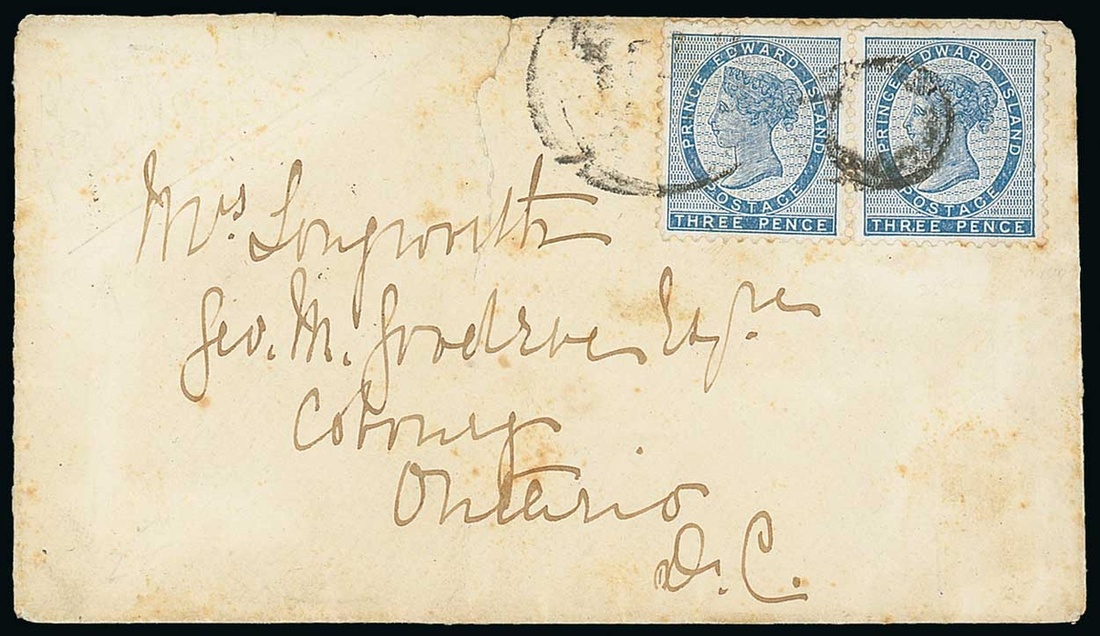 PRINCE EDWARD ISLAND POSTAGE THREE PENCE
PRINCE EDWARD ISLAND POSTAGE THREE PENCE
Mrs Longworth
Geo. M. Goodeve Esqre
Cobourg
Ontario
D. C.